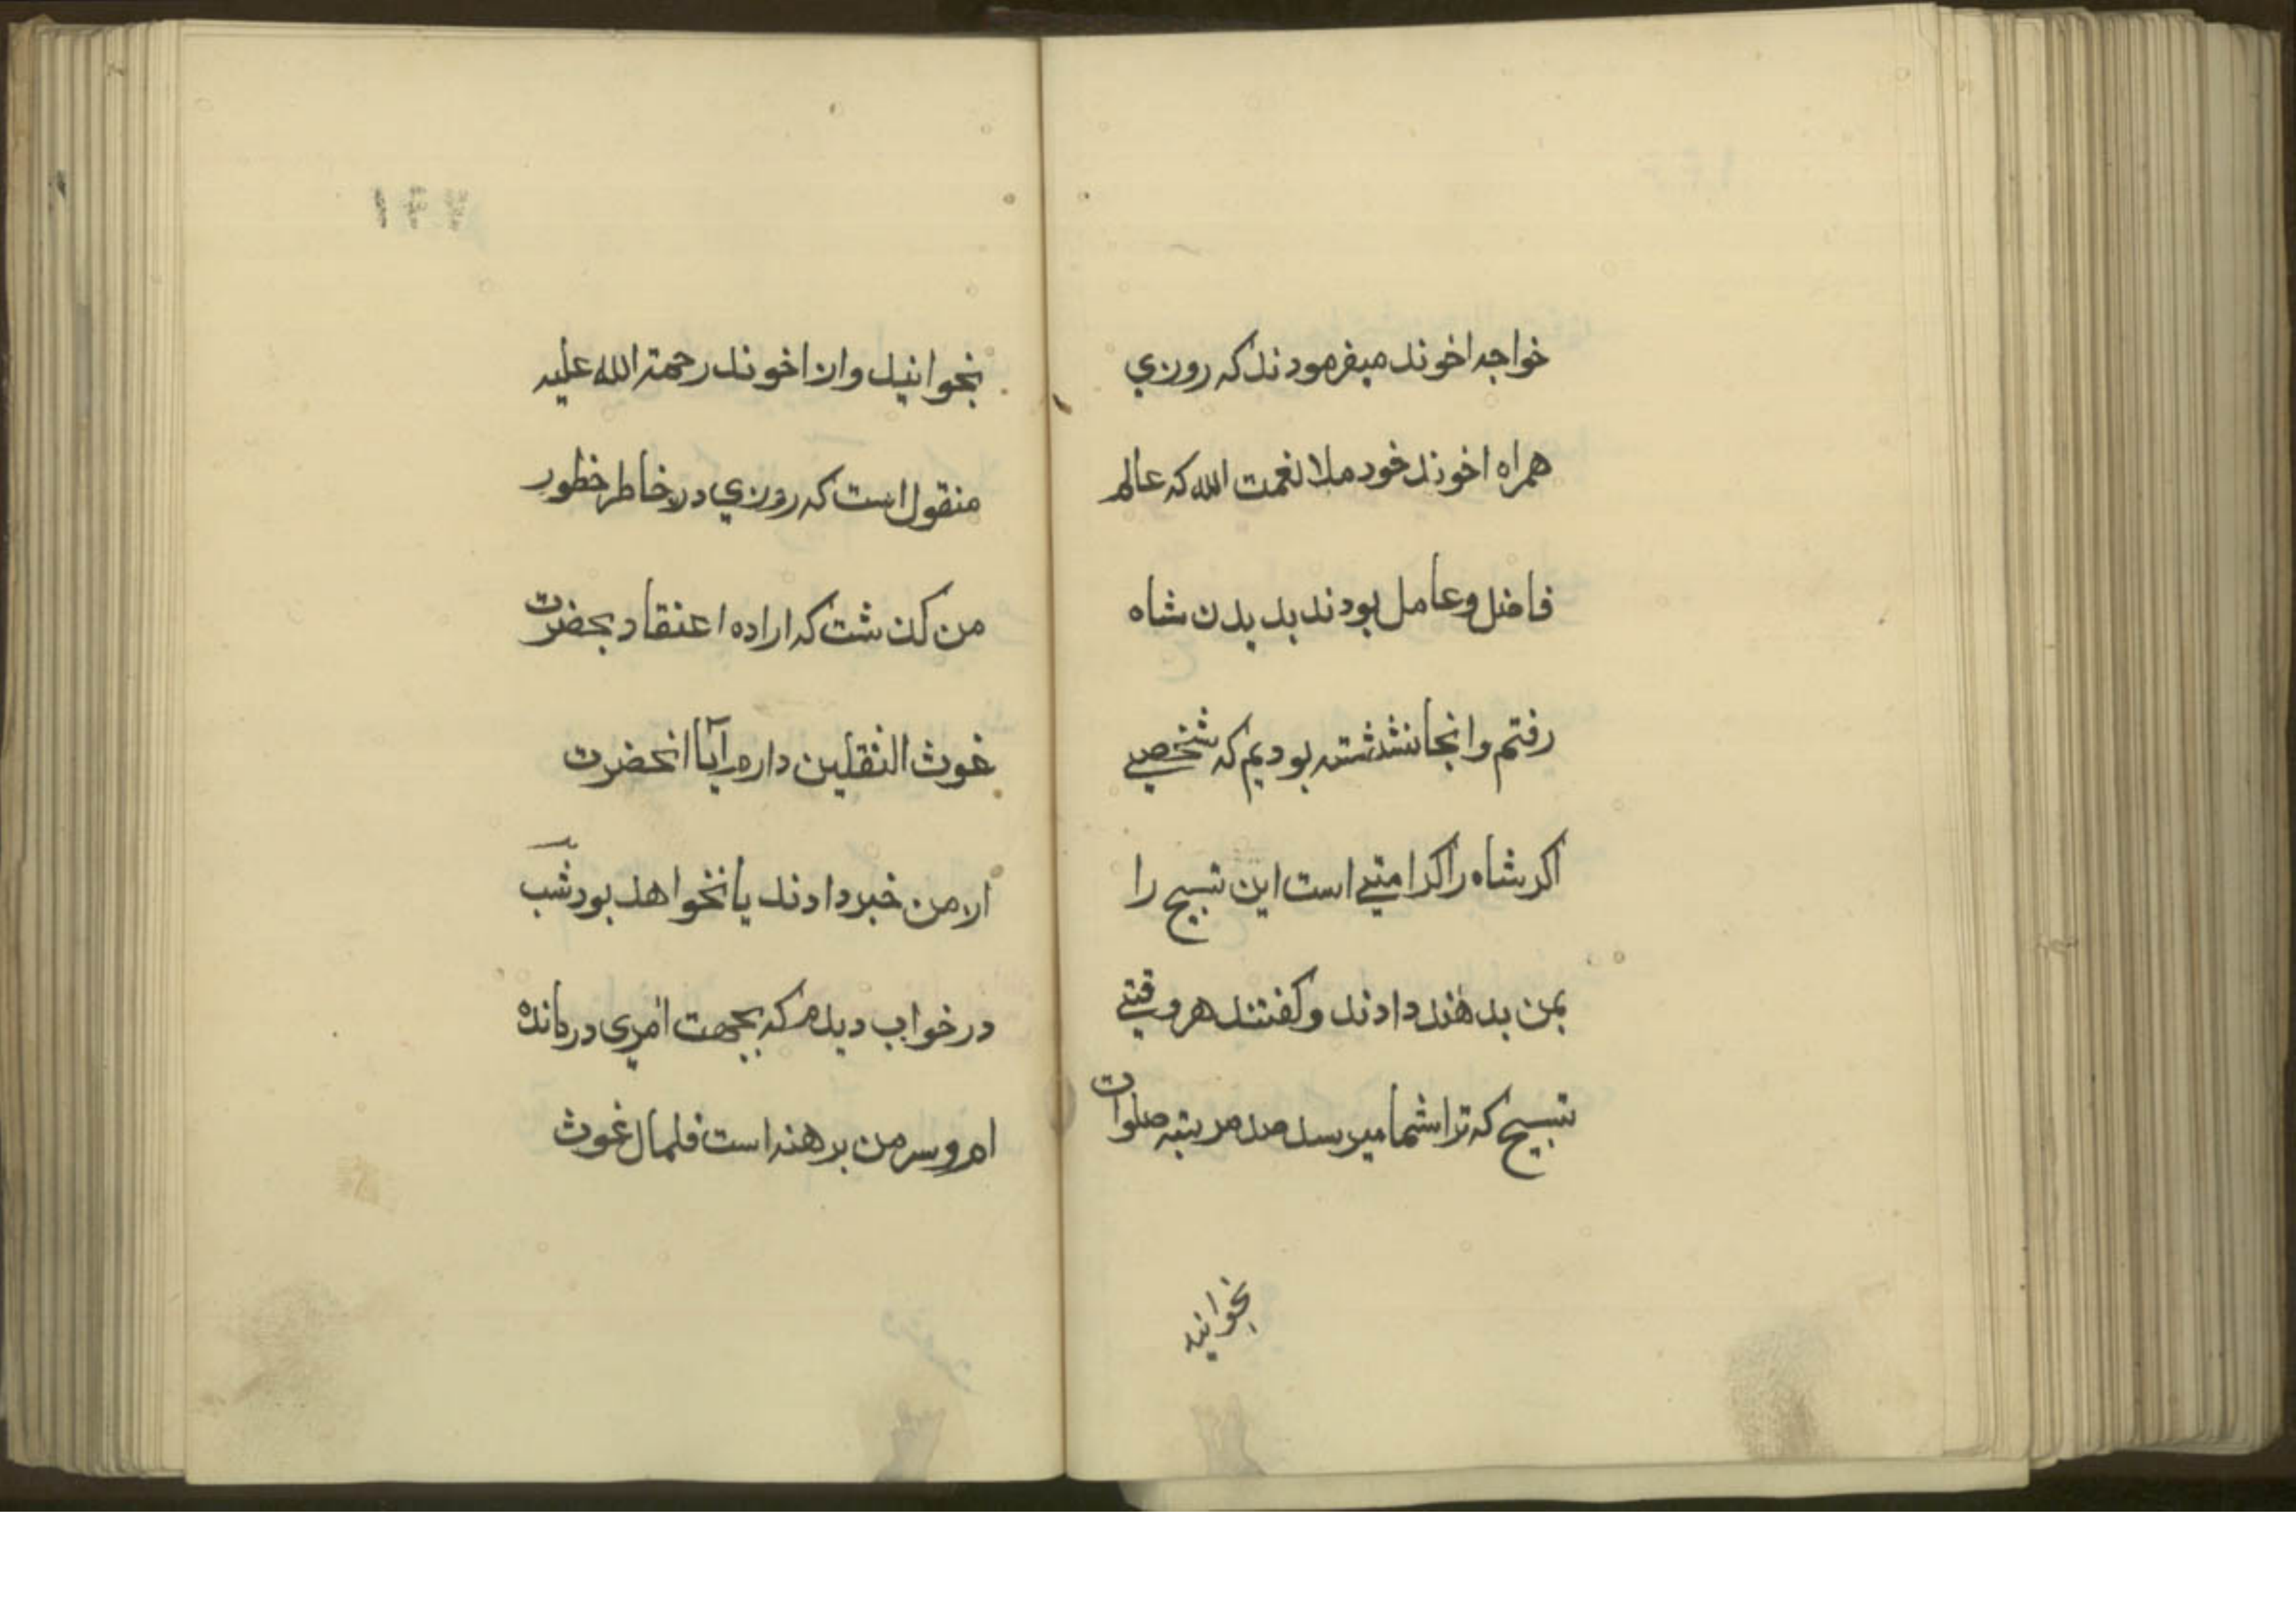 خواجه اخوند ميفرمودند که روزي
همراه اخوند خود ملا نعمت الله که عالم
فاضل و عامل بودند بديدن شاه
رفتم و انجا نشسته بوديم که شخصے
اکر شاه را کرامتے است اين تسبيح را
بمن بدهند دادند و کفتند هر وقتے
تسبيح که ترا شما ميرسد صد مرتبه صلوات
بخوانيد
بخوانيد و از اخوند رحمة الله عليه
منقول است که روزي در خاطر خطور
من کذشت که اراده اعتقاد بحضرت
غوث الثقلين دارم آيا انحضرت
از من خبر دادند يا نخواهد بود شب
در خواب ديدم که بجهت امری درمانده
ام و سر من برهنه است فلمال غوث